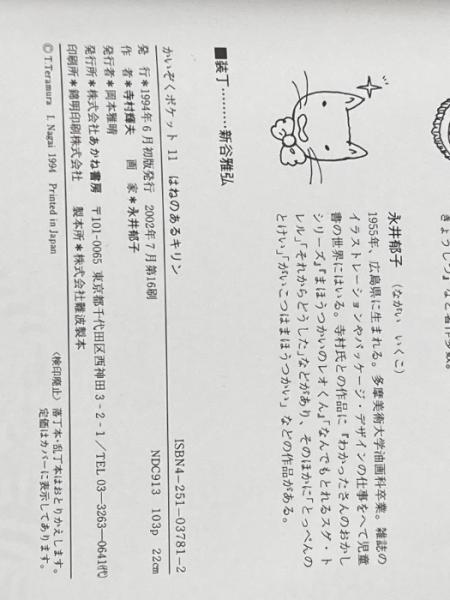 きょうしつ』など著作多数。
永井郁子 （ながい いくこ）
1955年、広島県に生まれる。多摩美術大学油画科卒業。雑誌の
イラストレーションやパッケージ・デザインの仕事をへて児童
書の世界にはいる。寺村氏との作品に『わかったさんのおかし
シリーズ』『まほうつかいのレオくん』『なんでもとれるスグ・ト
レル』『それからどうした』などがあり、そのほかに『とっぺんの
とけい』『がいこつはまほうつかい』などの作品がある。
■装丁………新谷雅弘
かいぞくポケット 11 はねのあるキリン
ISBN4-251-03781-2
発 行＊1994年6月初版発行 2002年7月第16刷
NDC913 103p 22cm
作 者＊寺村輝夫 画 家＊永井郁子
発行者＊岡本雅晴
発行所＊株式会社あかね書房 〒101-0065 東京都千代田区西神田3-2-1／TEL 03-3263-0641㈹
印刷所＊錦明印刷株式会社 製本所＊株式会社難波製本
© T.Teramura I. Nagai 1994 Printed in Japan
〈検印廃止〉落丁本・乱丁本はおとりかえします。
定価はカバーに表示してあります。